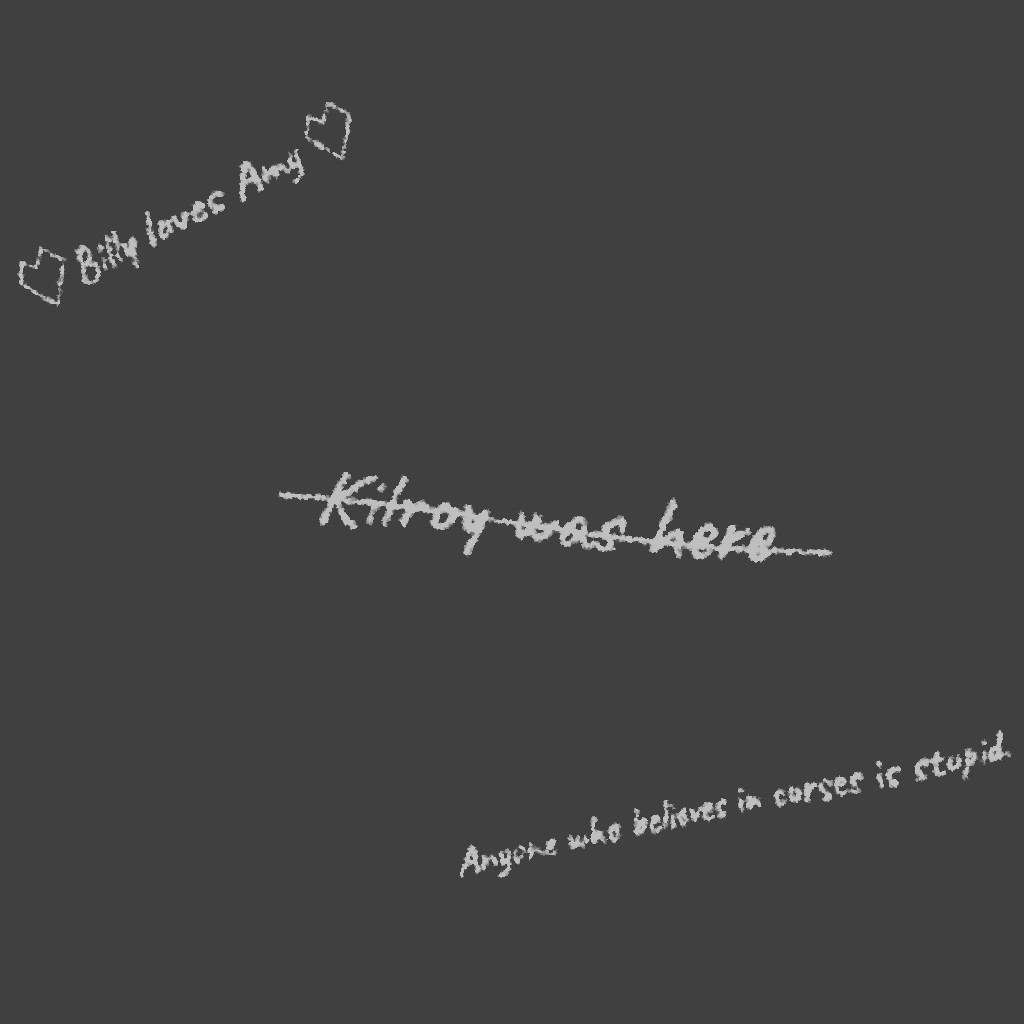 ♡ Billy loves Amy ♡
Kilroy was here
Anyone who believes in curses is stupid.